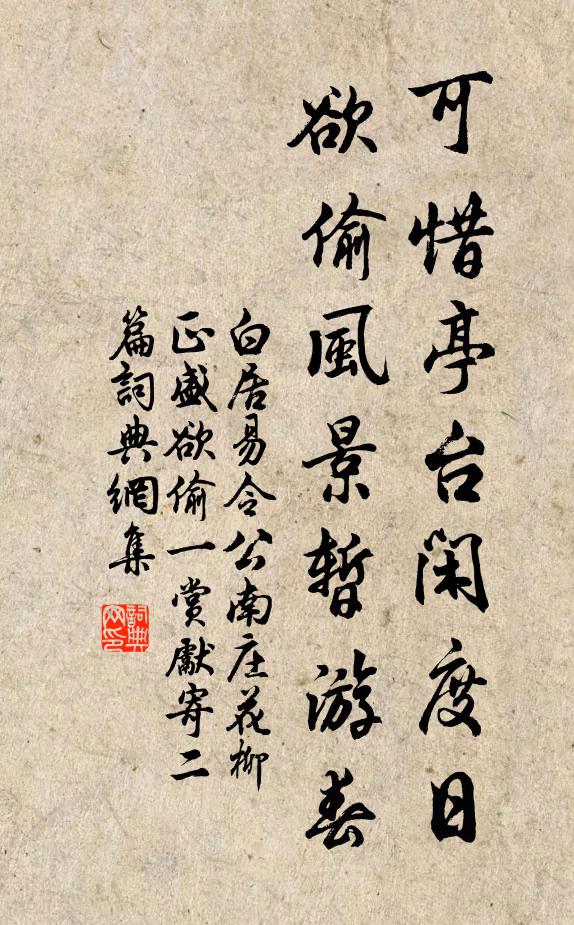 可惜亭台闲度日
欲偷風景暫游春
白居易令公南庄花柳
正盛欲偷一赏獻寄二
篇詞典網集
詞典网印